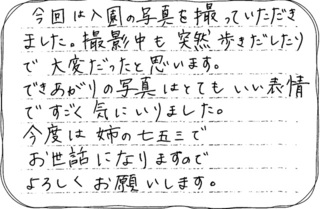 今回は入園の写真を撮っていただき
ました。撮影中も突然歩きだしたり
で大変だったと思います。
できあがりの写真はとてもいい表情
ですごく気にいりました。
今度は姉の七五三で
お世話になりますので
よろしくお願いします。